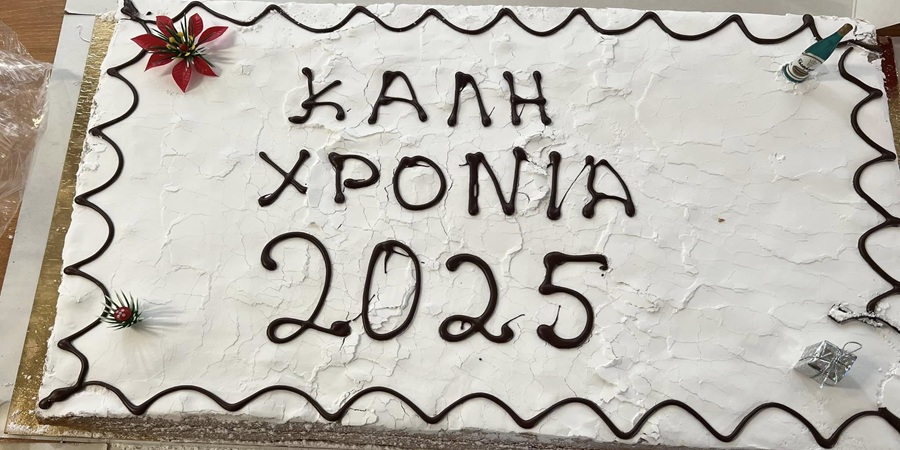 ΚΑΛΗ
ΧΡΟΝΙΑ
2025